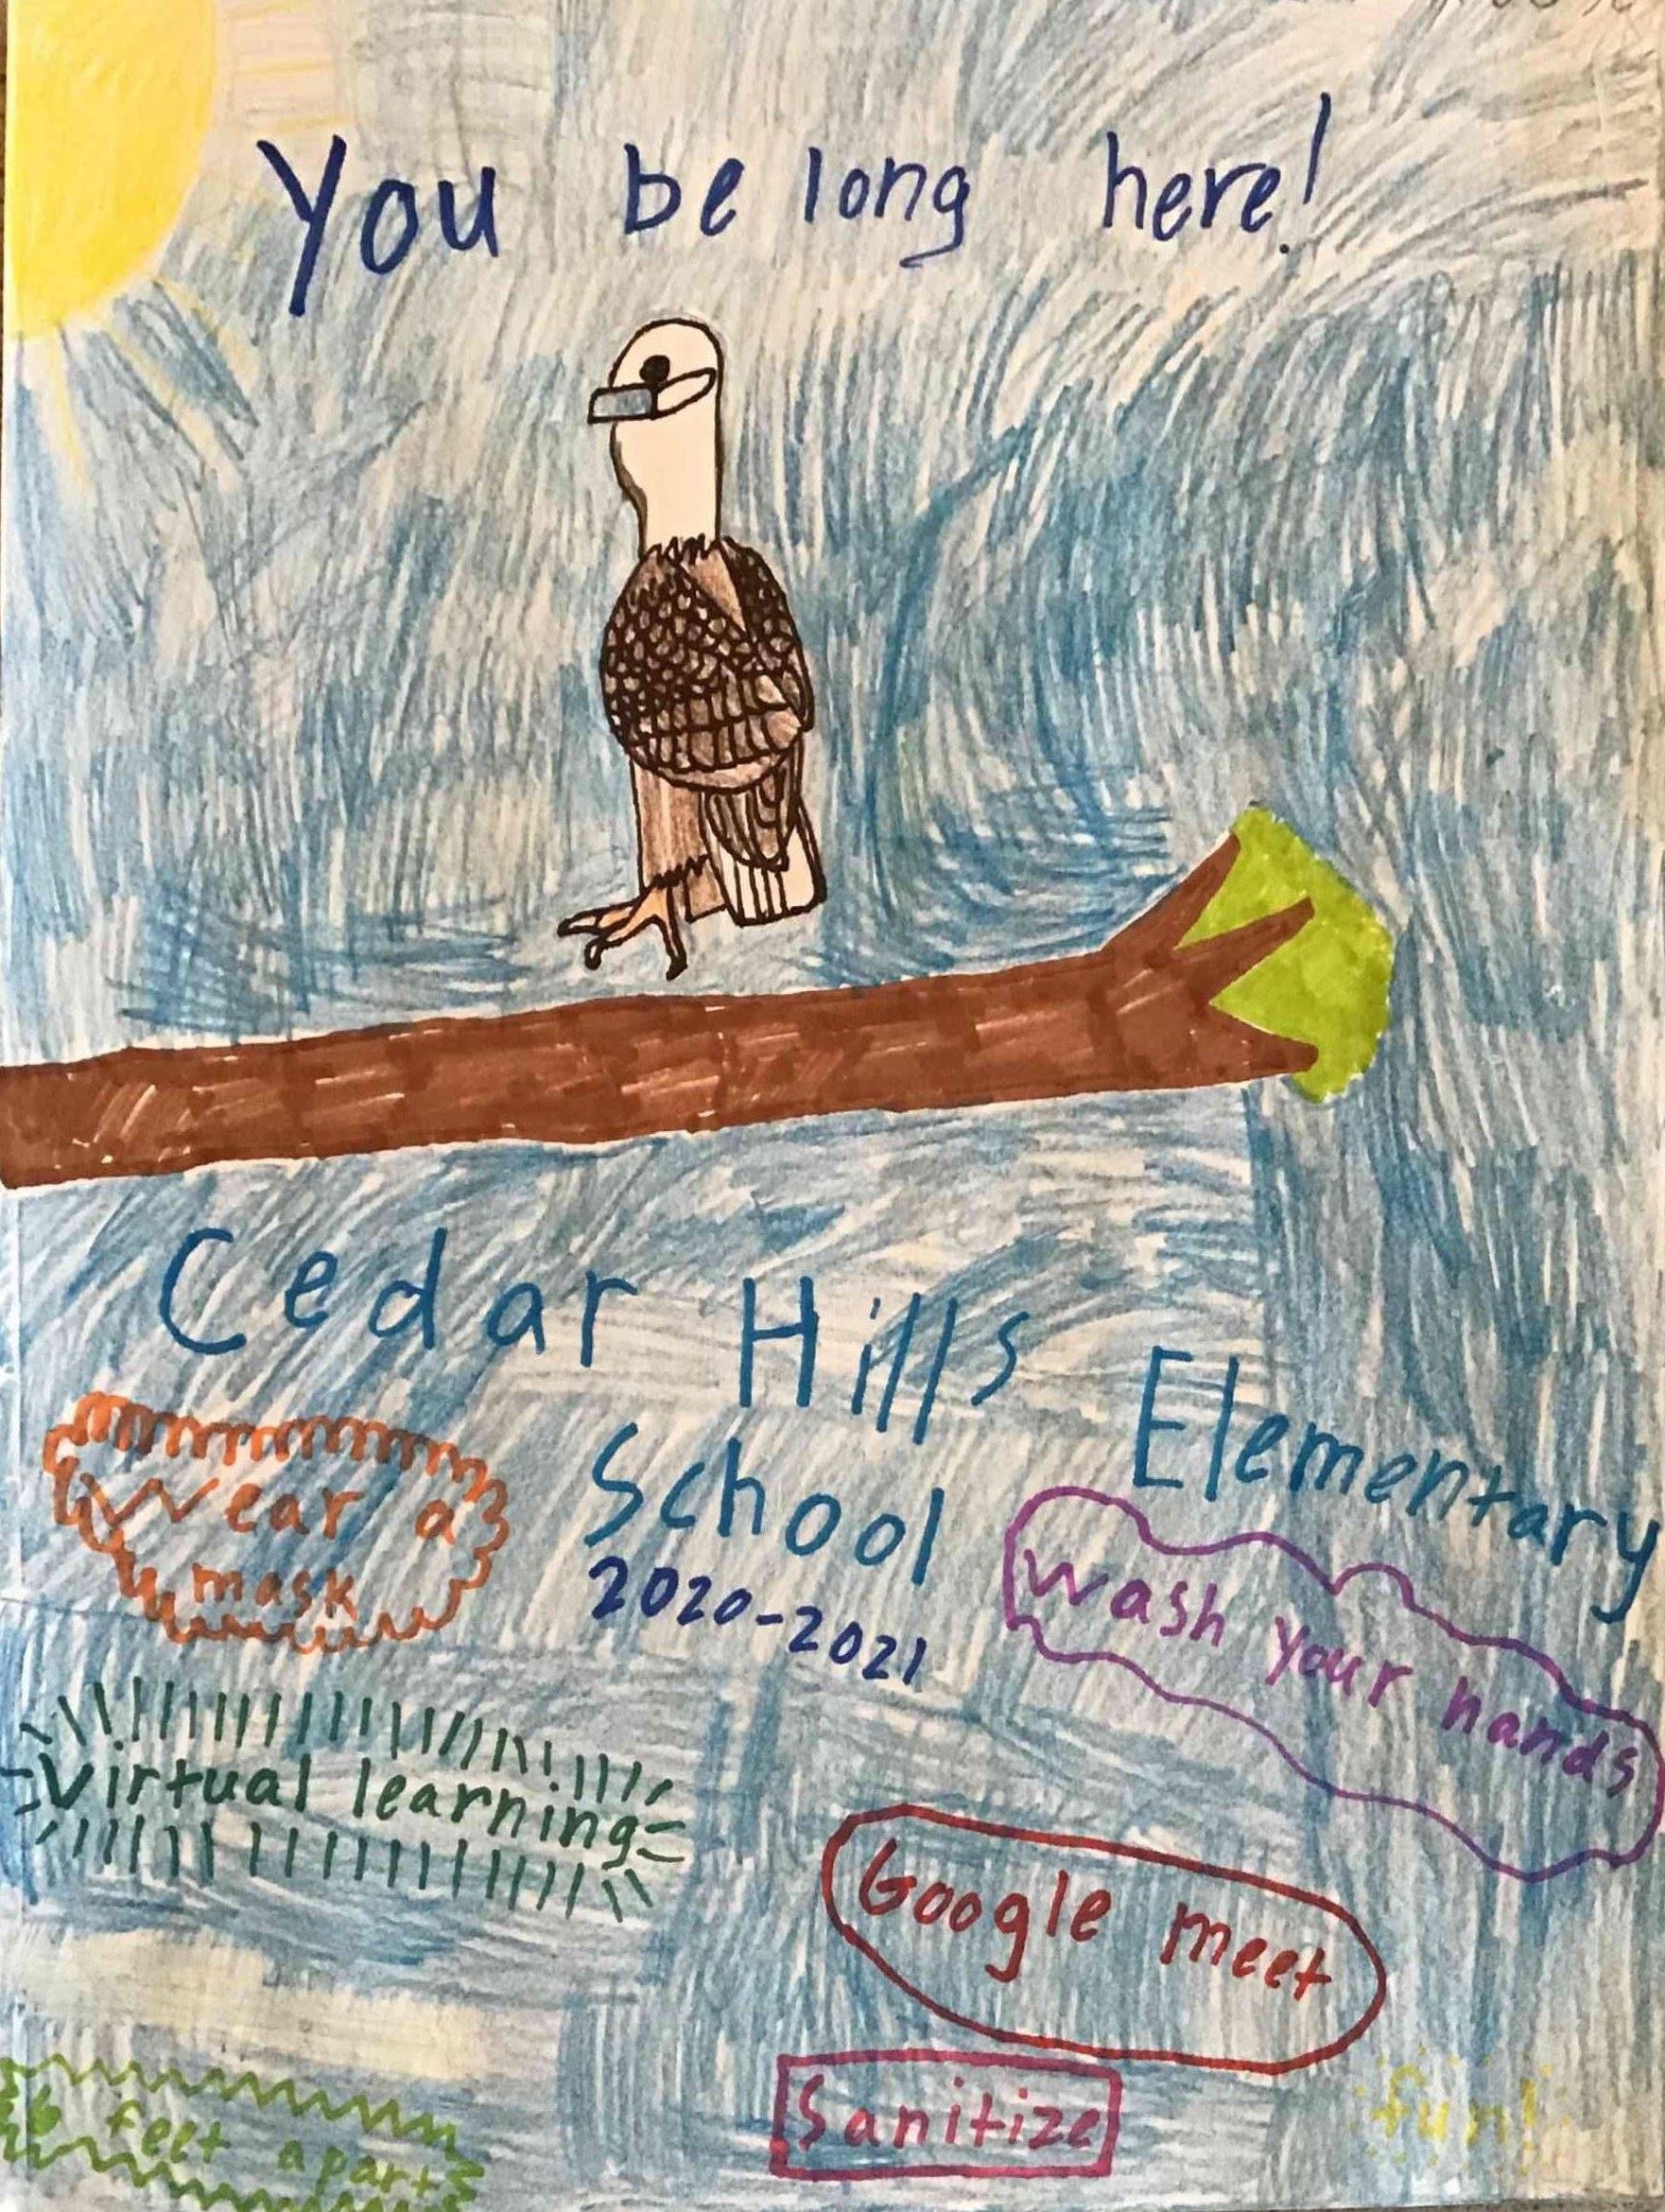 You belong here!
Cedar Hills Elementary
School
2020-2021
Wear a
mask
Wash your hands
Virtual learning
Google meet
6 feet apart
Sanitize
fun!